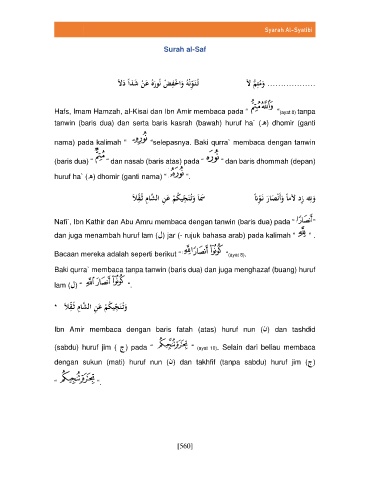 Syarah Al-Syatibi
Surah al-Saf
وَمُتِمُّ لَا تُنَوِّنْهُ وَاخْفِضْ نُورَهُ عَنْ شَذًا دَلَا
Hafs, Imam Hamzah, al-Kisai dan Ibn Amir membaca pada “ وَٱللَّهُ مُتِمُّ ”(ayat 8) tanpa
tanwin (baris dua) dan serta baris kasrah (bawah) huruf ha` (ه) dhomir (ganti
nama) pada kalimah “ نُورِهِۦ ”selepasnya. Baki qurra` membaca dengan tanwin
(baris dua) “ مُتِمٌّ ” dan nasab (baris atas) pada “ نُورَهُ ” dan baris dhommah (depan)
huruf ha` (ه) dhomir (ganti nama) “ نُورَهُۥ ”.
وَلِلَّهِ زِدْ لَامًا وَأَنْصَارَ نَوِّنًا سَمَا وَتُنَجِّيكُمْ عَنِ الشَّامِ ثُقِّلَا
Nafi`, Ibn Kathir dan Abu Amru membaca dengan tanwin (baris dua) pada “ أَنصَارًا ”
dan juga menambah huruf lam (ل) jar (- rujuk bahasa arab) pada kalimah “ لِلَّهِ ” .
Bacaan mereka adalah seperti berikut “ كُونُوٓا۟ أَنصَارًا لِلَّهِ ”(ayat 8).
Baki qurra` membaca tanpa tanwin (baris dua) dan juga menghazaf (buang) huruf
lam (ل) “ كُونُوٓا۟ أَنصَارَ ٱللَّهِ ”.
* وَتُنَجِّيكُمْ عَنِ الشَّامِ ثُقِّلَا
Ibn Amir membaca dengan baris fatah (atas) huruf nun (ن) dan tashdid
(sabdu) huruf jim ( ج) pada “ تِجَٰرَةٍ تُنَجِّيكُم ” (ayat 10). Selain dari beliau membaca
dengan sukun (mati) huruf nun (ن) dan takhfif (tanpa sabdu) huruf jim (ج)
“ تِجَٰرَةٍ تُنجِيكُم ”.
[560]